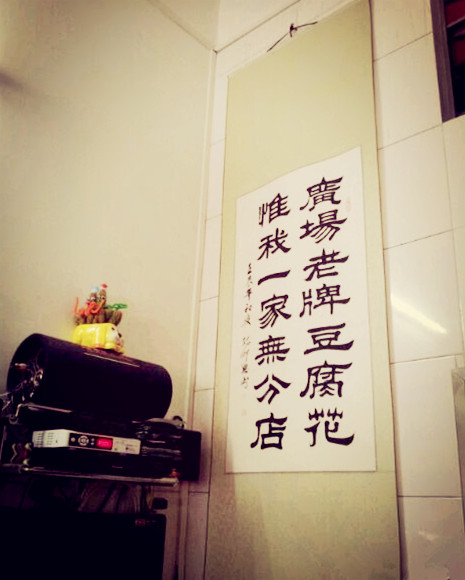 廣場老牌豆腐花
惟我一家無分店